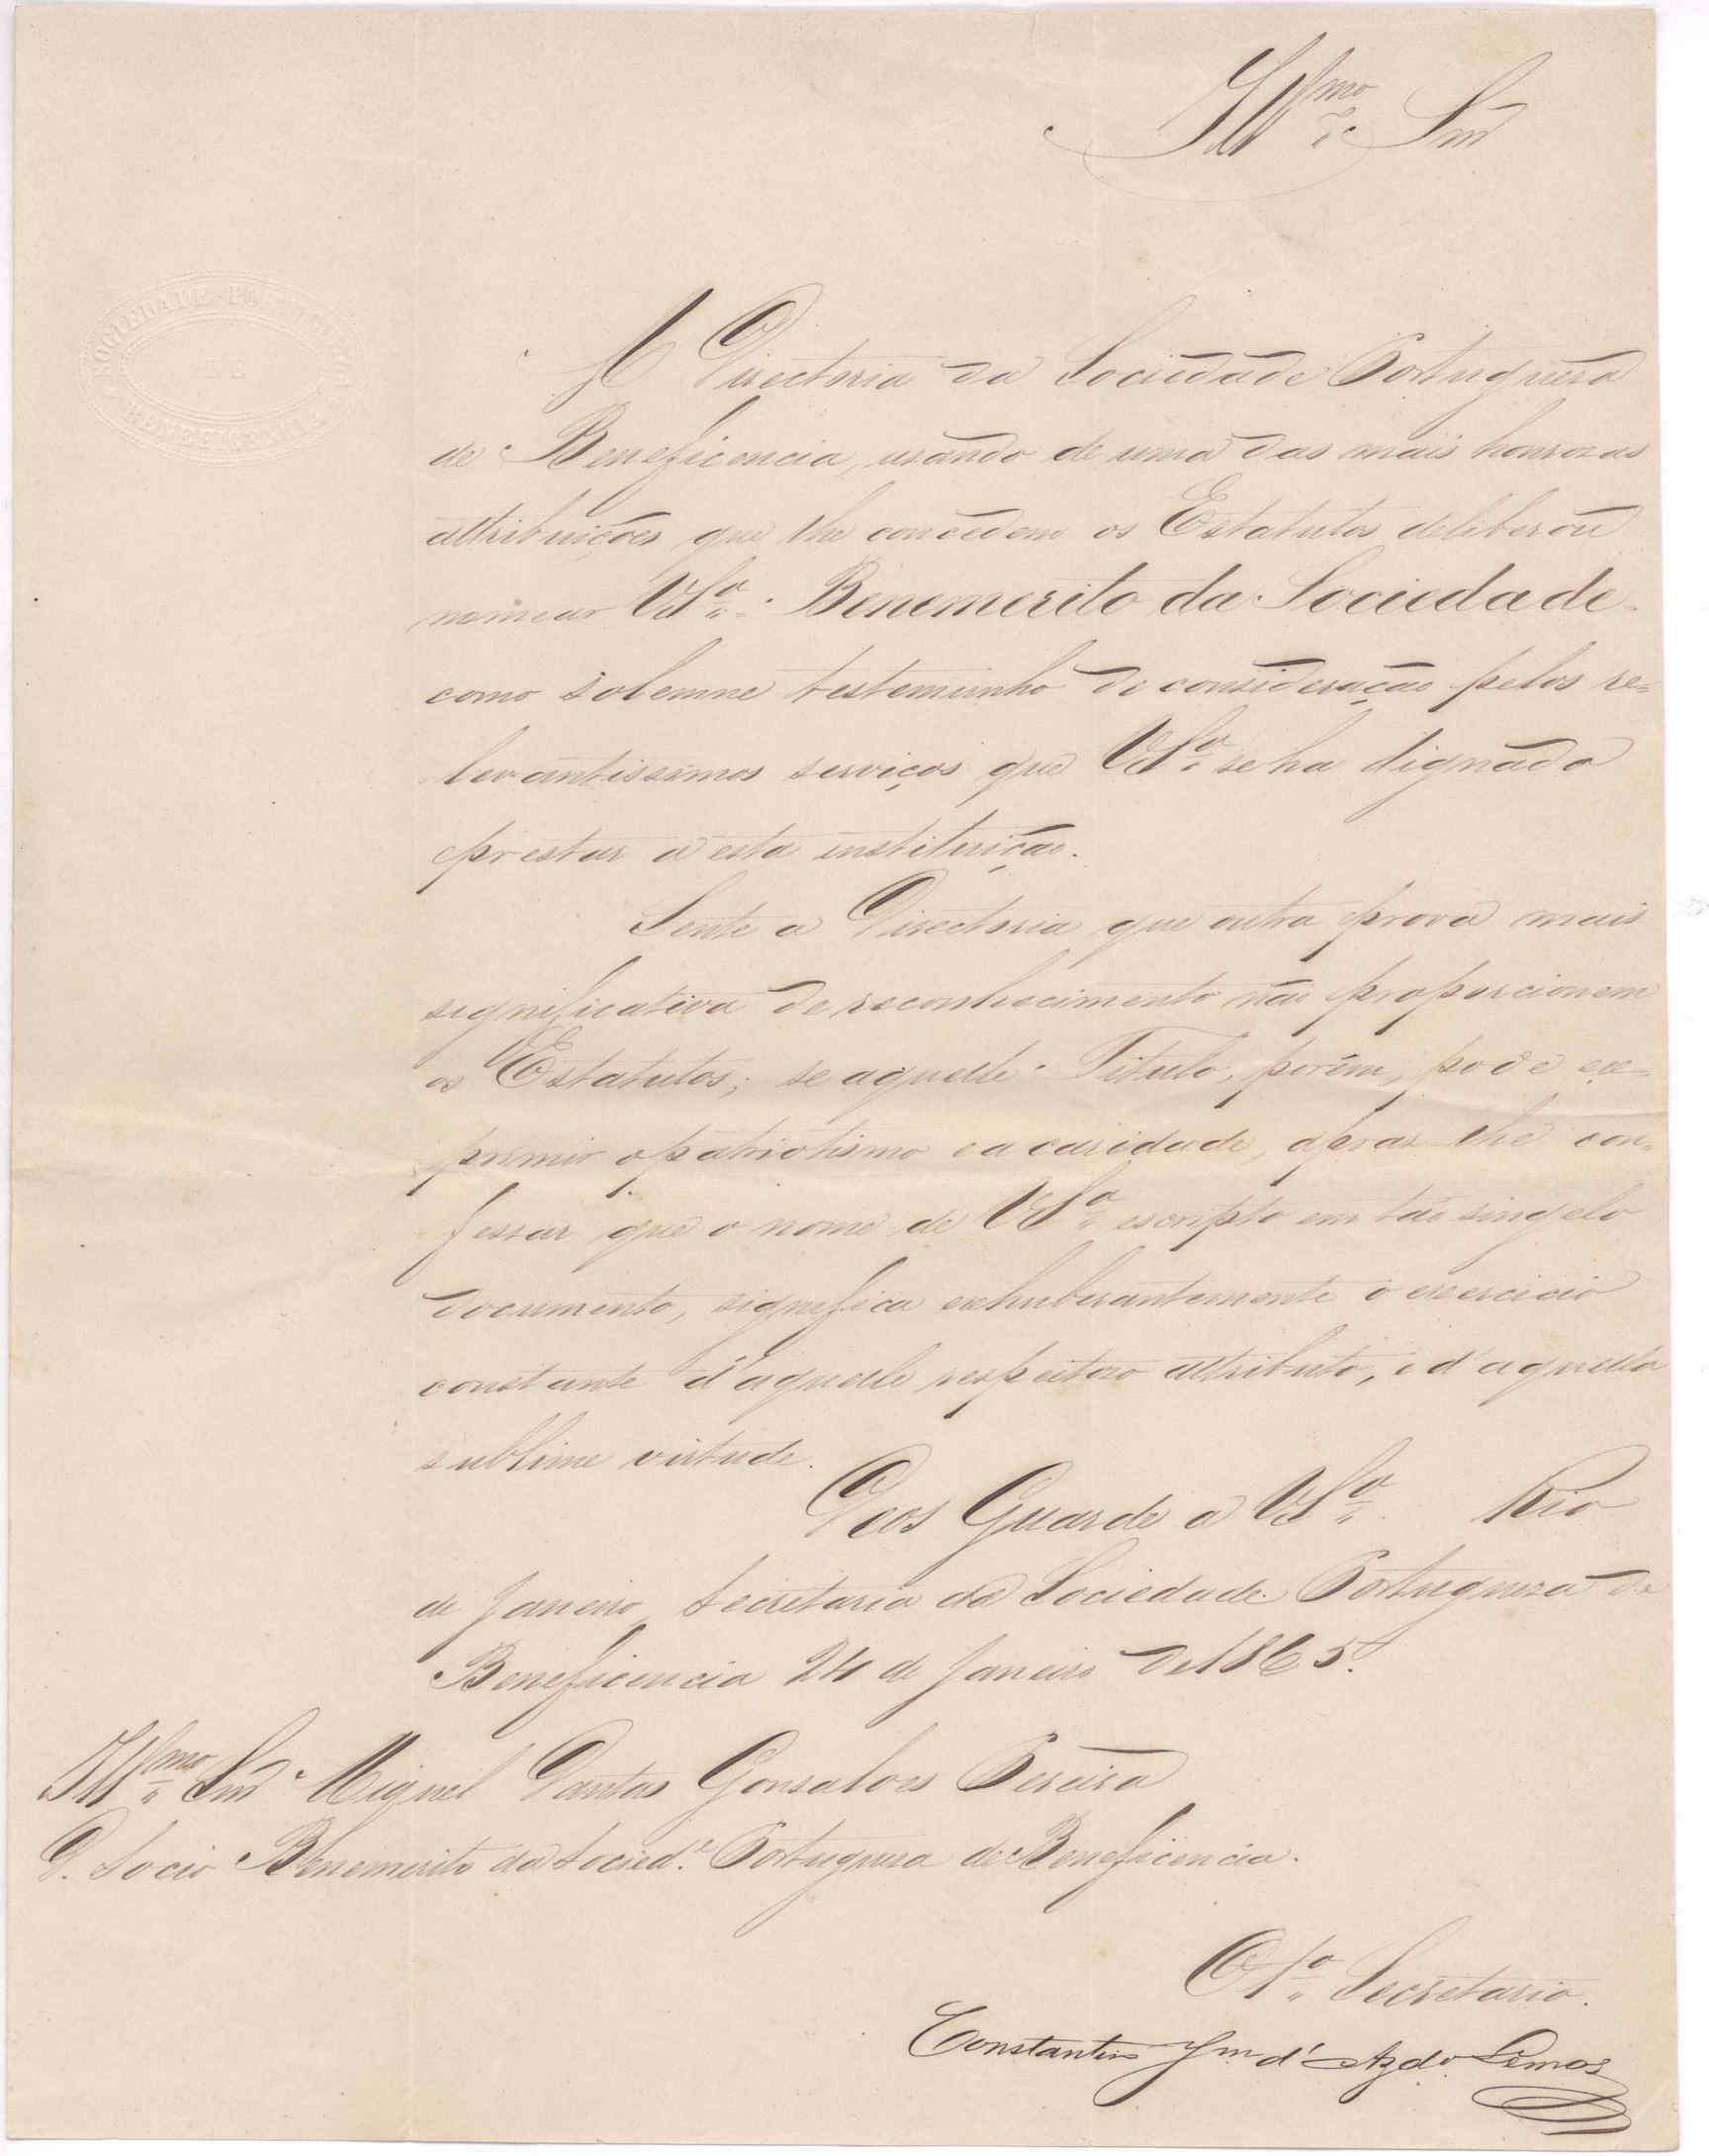 Illmo Snr
SOCIEDADE PORTUGUEZA
DE
BENEFICENCIA
A Directoria da Sociedade Portugueza
de Beneficencia, usando de uma das mais honrozas
attribuições que lhe concedem os Estatutos deliberou
nomear VSa. Benemerito da Sociedade
como solemne testemunho de consideração pelos re=
levantissimos serviços que VSa. se ha dignado
prestar a esta instituição.
Sente a Directoria que outra prova mais
significativa de reconhecimento não proporcionem
os Estatutos; se aquelle Titulo, porém, pode ex=
primir o patriotismo e a caridade, apraz lhe con=
fessar que o nome de VSa. escripto em tão singelo
documento, significa exhuberantemente o exercicio
constante d'aquelle respeitozo attributo, e d'aquella
sublime virtude.
Deos Guarde a VSa. Rio
de Janeiro, Secretaria da Sociedade Portugueza de
Beneficencia 24 de Janeiro de 1865.
Illmo Snr Miguel Dantas Gonsalves Pereira
D. Socio Benemerito da Socied.e Portugueza de Beneficencia.
O 1o. Secretario.
Constantino Jm. d'Azdo. Lemos